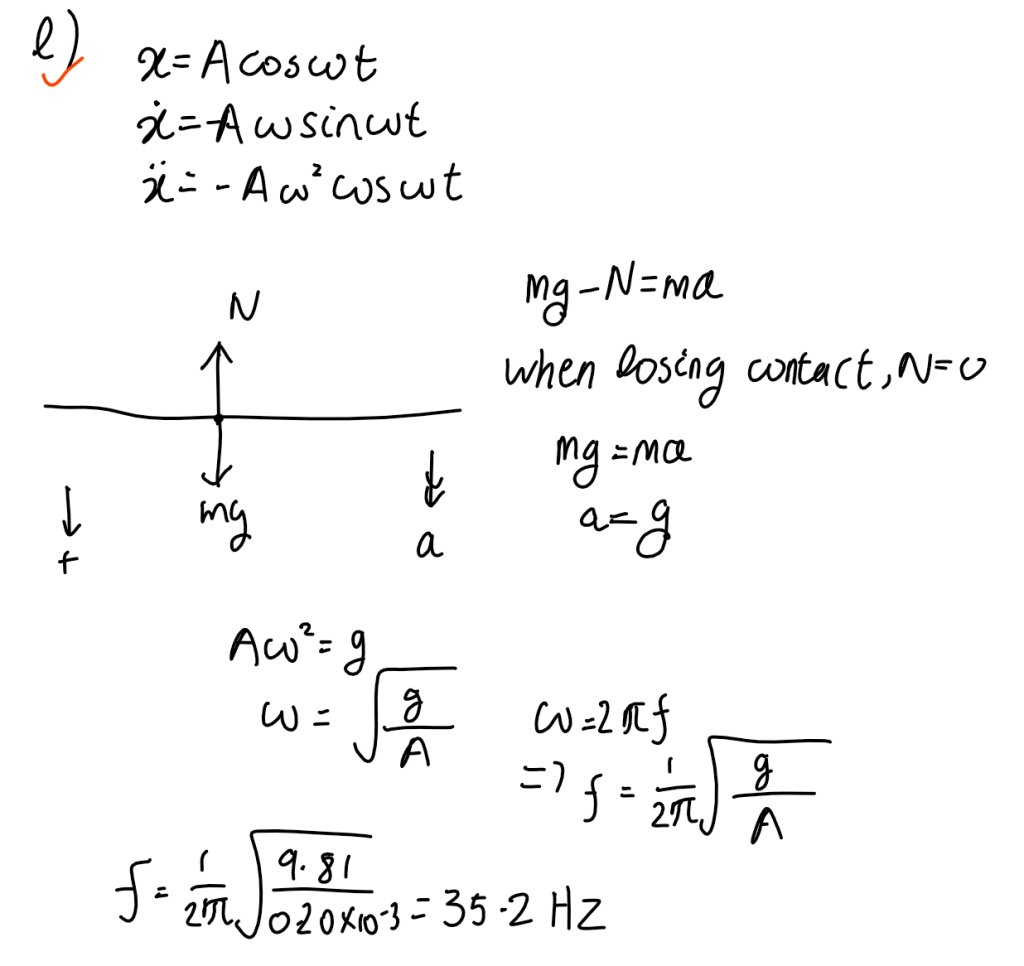 l)
x=Acoswt
ẋ=-Aωsinωt
ẍ=-Aω²cosωt
N
mg-N=ma
when losing contact, N=0
mg=ma
a=g
mg
+
a
Aω²=g
ω=√(g/A)
ω=2πf
=> f=1/2π √(g/A)
f=1/2π √(9.81/0.20×10-3)=35.2 Hz